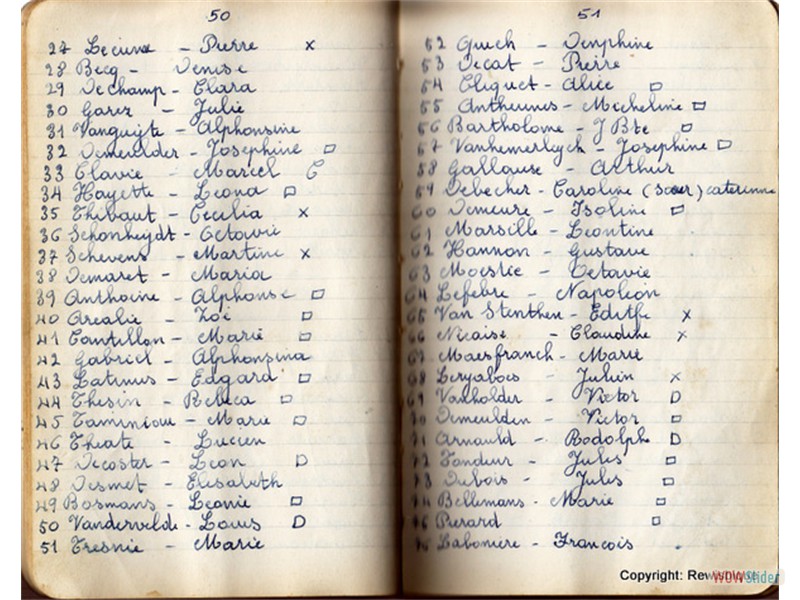 50
27 Lecieux - Pierre x
28 Becq - Denise
29 Dechamp - Clara
30 Garez - Julie
31 Vanguijte - Alphonsine
32 Demeulder - Josephine □
33 Clavie - Marcel C
34 Hayette - Leona □
35 Thibaut - Cecilia x
36 Schonheydt - Octavie
37 Schevens - Martine x
38 Demaret - Maria
39 Anthoine - Alphonse □
40 Arcalie - Zoé □
41 Cantillon - Marie □
42 Gabriel - Alphonsina
43 Latinus - Edgard □
44 Thesin - Rebeca □
45 Taminiau - Marie □
46 Theate - Lucien
47 Decoster - Leon D
48 Desmet - Elisabeth
49 Bosmans - Leonie □
50 Vandervelde - Louis D
51 Fresnie - Marie
51
52 Quech - Denphine
53 Decat - Pierre
54 Cliquet - Alice □
55 Antheunes - Micheline □
56 Bartholome - J Bte □
57 Vanhemerlych - Josephine □
58 Gallause - Arthur
59 Debecher - Caroline (Soeur) caterinne
60 Demeure - Isoline □
61 Marsille - Leontine
62 Hannon - Gustave
63 Moestie - Octavie
64 Lefebre - Napoleon
65 Van Stenthen - Edithe x
66 Nicaise - Claudine x
67 Maesfranch - Marie
68 Leryabois - Julien x
69 Vanholder - Victor D
70 Demeulden - Victor □
71 Arnauld - Rodolphe D
72 Tondeur - Jules □
73 Dubois - Jules □
74 Bellemans - Marie □
75 Pierard □
76 Labomiere - Francois
Copyright:
WOWSlider